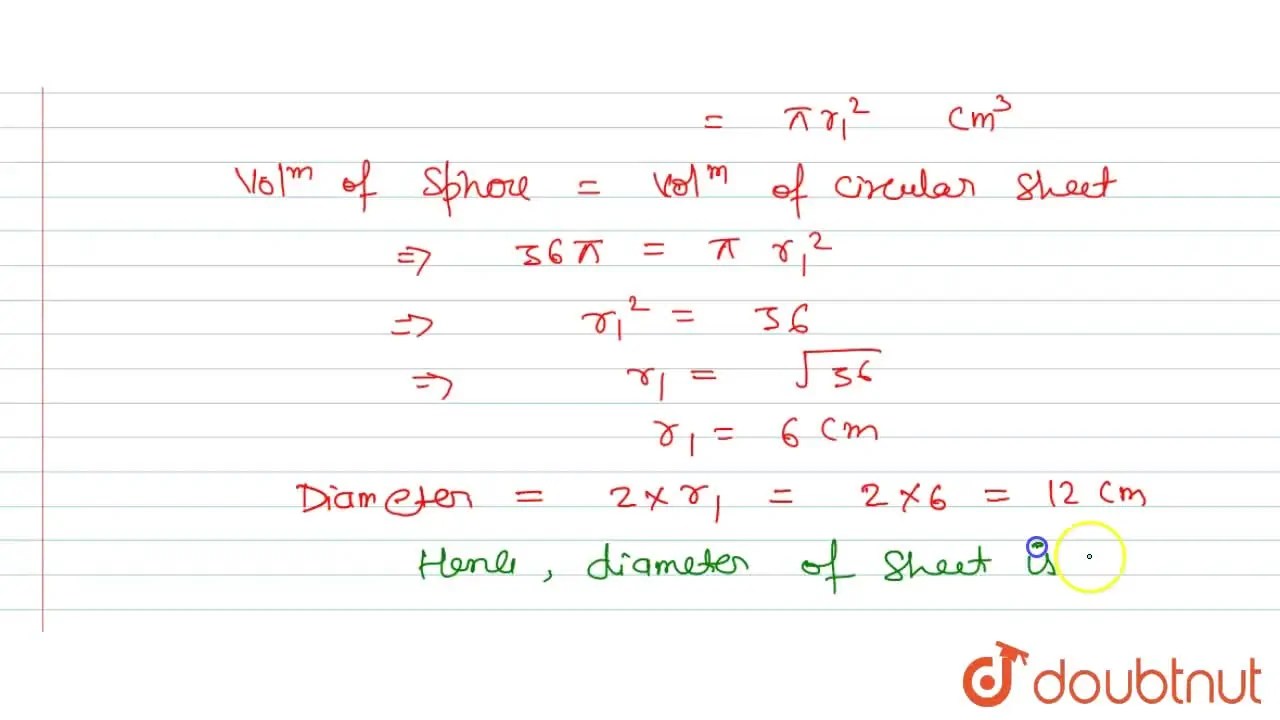 = πr₁² cm³
Volᵐ of Sphere = Volᵐ of circular sheet
⇒ 36π = π r₁²
⇒ r₁² = 36
⇒ r₁ = √36
r₁ = 6 cm
Diameter = 2×r₁ = 2×6 = 12 cm
Hence, diameter of sheet is
doubtnut